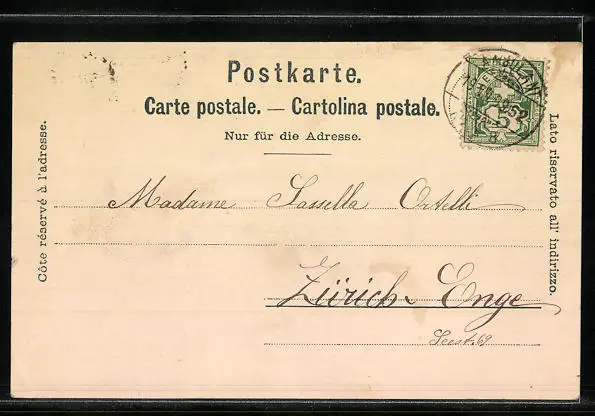 Postkarte.
Carte postale. — Cartolina postale.
Nur für die Adresse.
Côte réservé à l'adresse.
Lato riservato all' indirizzo.
Madame Sassella Ortelli
Zürich Enge
Seestr. 69